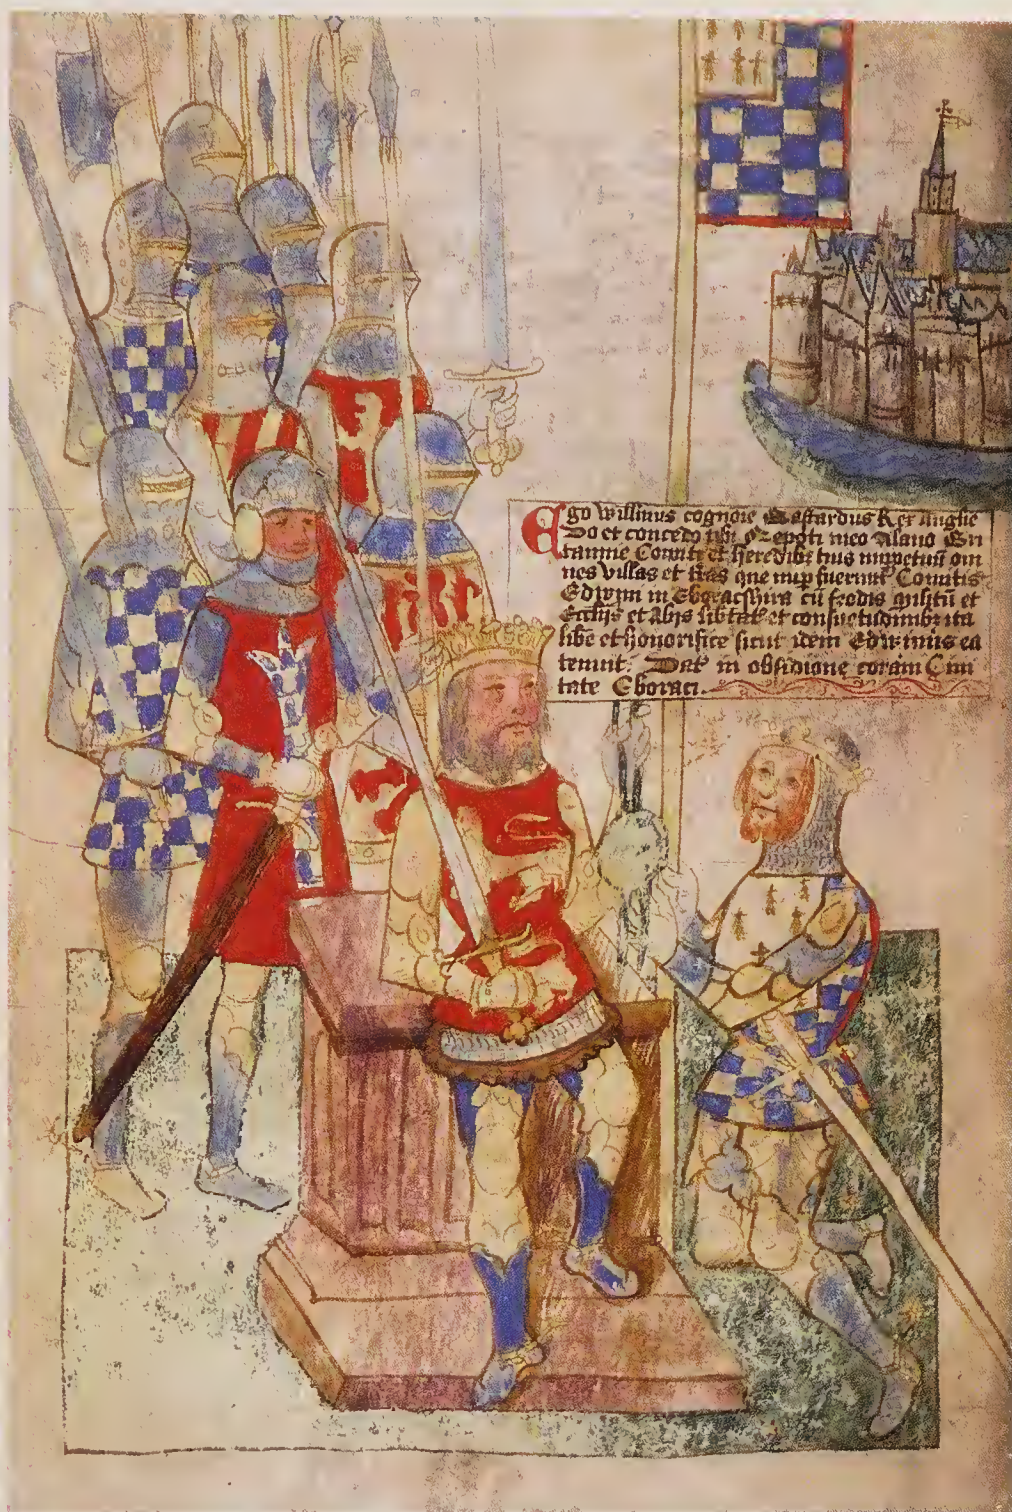 Ego Willmus cognoie Bastardus Rex Anglie
Do et concedo tibi Nepoti meo Alano Bri
tannie Comiti et heredibz tuis imppetuū om
nes villas et tras que nup fuerunt Comitis
Edwyni in Eboracshira cū feodis militū et
Eccliis et Abijs libtat et consuetudinibz ita
libe et honorifice sicut idem Edwinus ea
tenuit. Dat in obsidione coram Ciui
tate Eboraci.